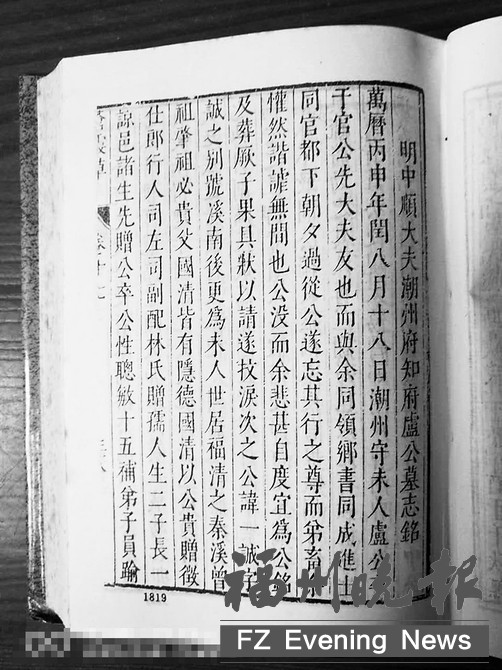 明中順大夫潮州府知府盧公墓志銘
萬曆丙申年閏八月十八日潮州守未人盧公卒
于官公先大夫友也而與余同領鄉書同成進士
同官都下朝夕過從公遂忘其行之尊而弟畜余
懽然諧謔無間也公没而余悲甚自度宜為公銘
及葬厥子果具狀以請遂抆淚次之公諱一誠字
誠之别號溪南後更為未人世居福清之秦溪曾
祖肇祖必貴父國清皆有隱德國清以公貴贈徵
仕郎行人司左司副配林氏贈孺人生二子長一
諒邑諸生先贈公卒公性聰敏十五補弟子員踰
蒼霞草
卷十七
1819
福州晚报
FZ Evening News